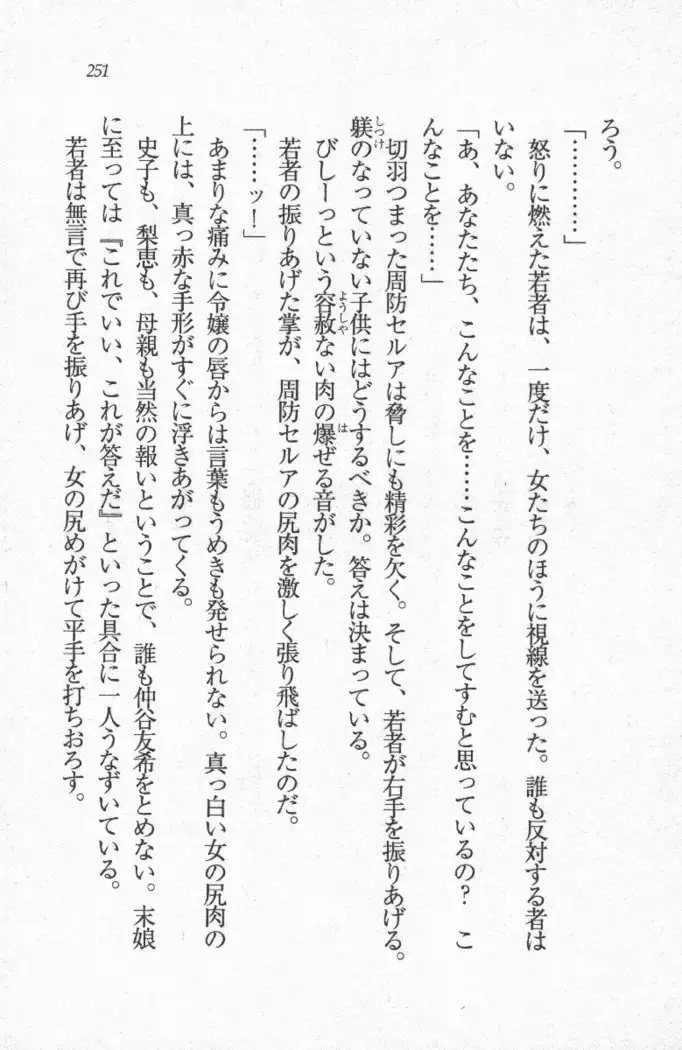 251
ろう。
「…………」
怒りに燃えた若者は、一度だけ、女たちのほうに視線を送った。誰も反対する者は
いない。
「あ、あなたたち、こんなことを……こんなことをしてすむと思っているの？　こ
んなことを……」
切羽つまった周防セルアは脅しにも精彩を欠く。そして、若者が右手を振りあげる。
躾のなっていない子供にはどうするべきか。答えは決まっている。
びしーっという容赦ない肉の爆ぜる音がした。
若者の振りあげた掌が、周防セルアの尻肉を激しく張り飛ばしたのだ。
「……ッ！」
あまりな痛みに令嬢の唇からは言葉もうめきも発せられない。真っ白い女の尻肉の
上には、真っ赤な手形がすぐに浮きあがってくる。
史子も、梨恵も、母親も当然の報いということで、誰も仲谷友希をとめない。末娘
に至っては『これでいい、これが答えだ』といった具合に一人うなずいている。
若者は無言で再び手を振りあげ、女の尻めがけて平手を打ちおろす。